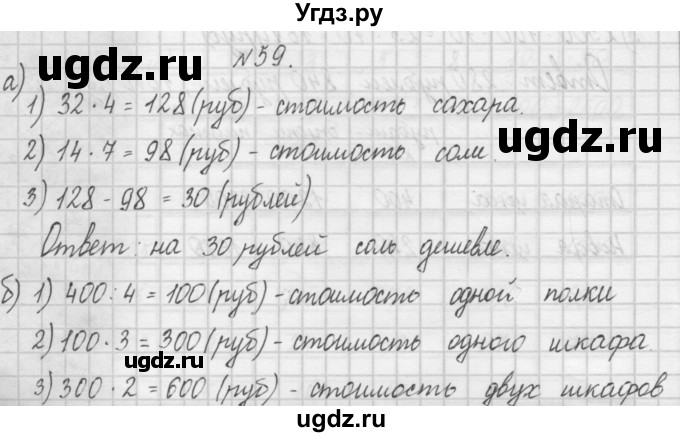 Угдз.ру
№59.
а)
1) 32 · 4 = 128 (руб) - стоимость сахара.
2) 14 · 7 = 98 (руб) - стоимость соли.
3) 128 - 98 = 30 (рублей)
Ответ: на 30 рублей соль дешевле.
б) 1) 400 : 4 = 100 (руб) - стоимость одной полки
2) 100 · 3 = 300 (руб) - стоимость одного шкафа.
3) 300 · 2 = 600 (руб) - стоимость двух шкафов
ugdz.ru
ugdz.ru
ugdz.ru
ugdz.ru